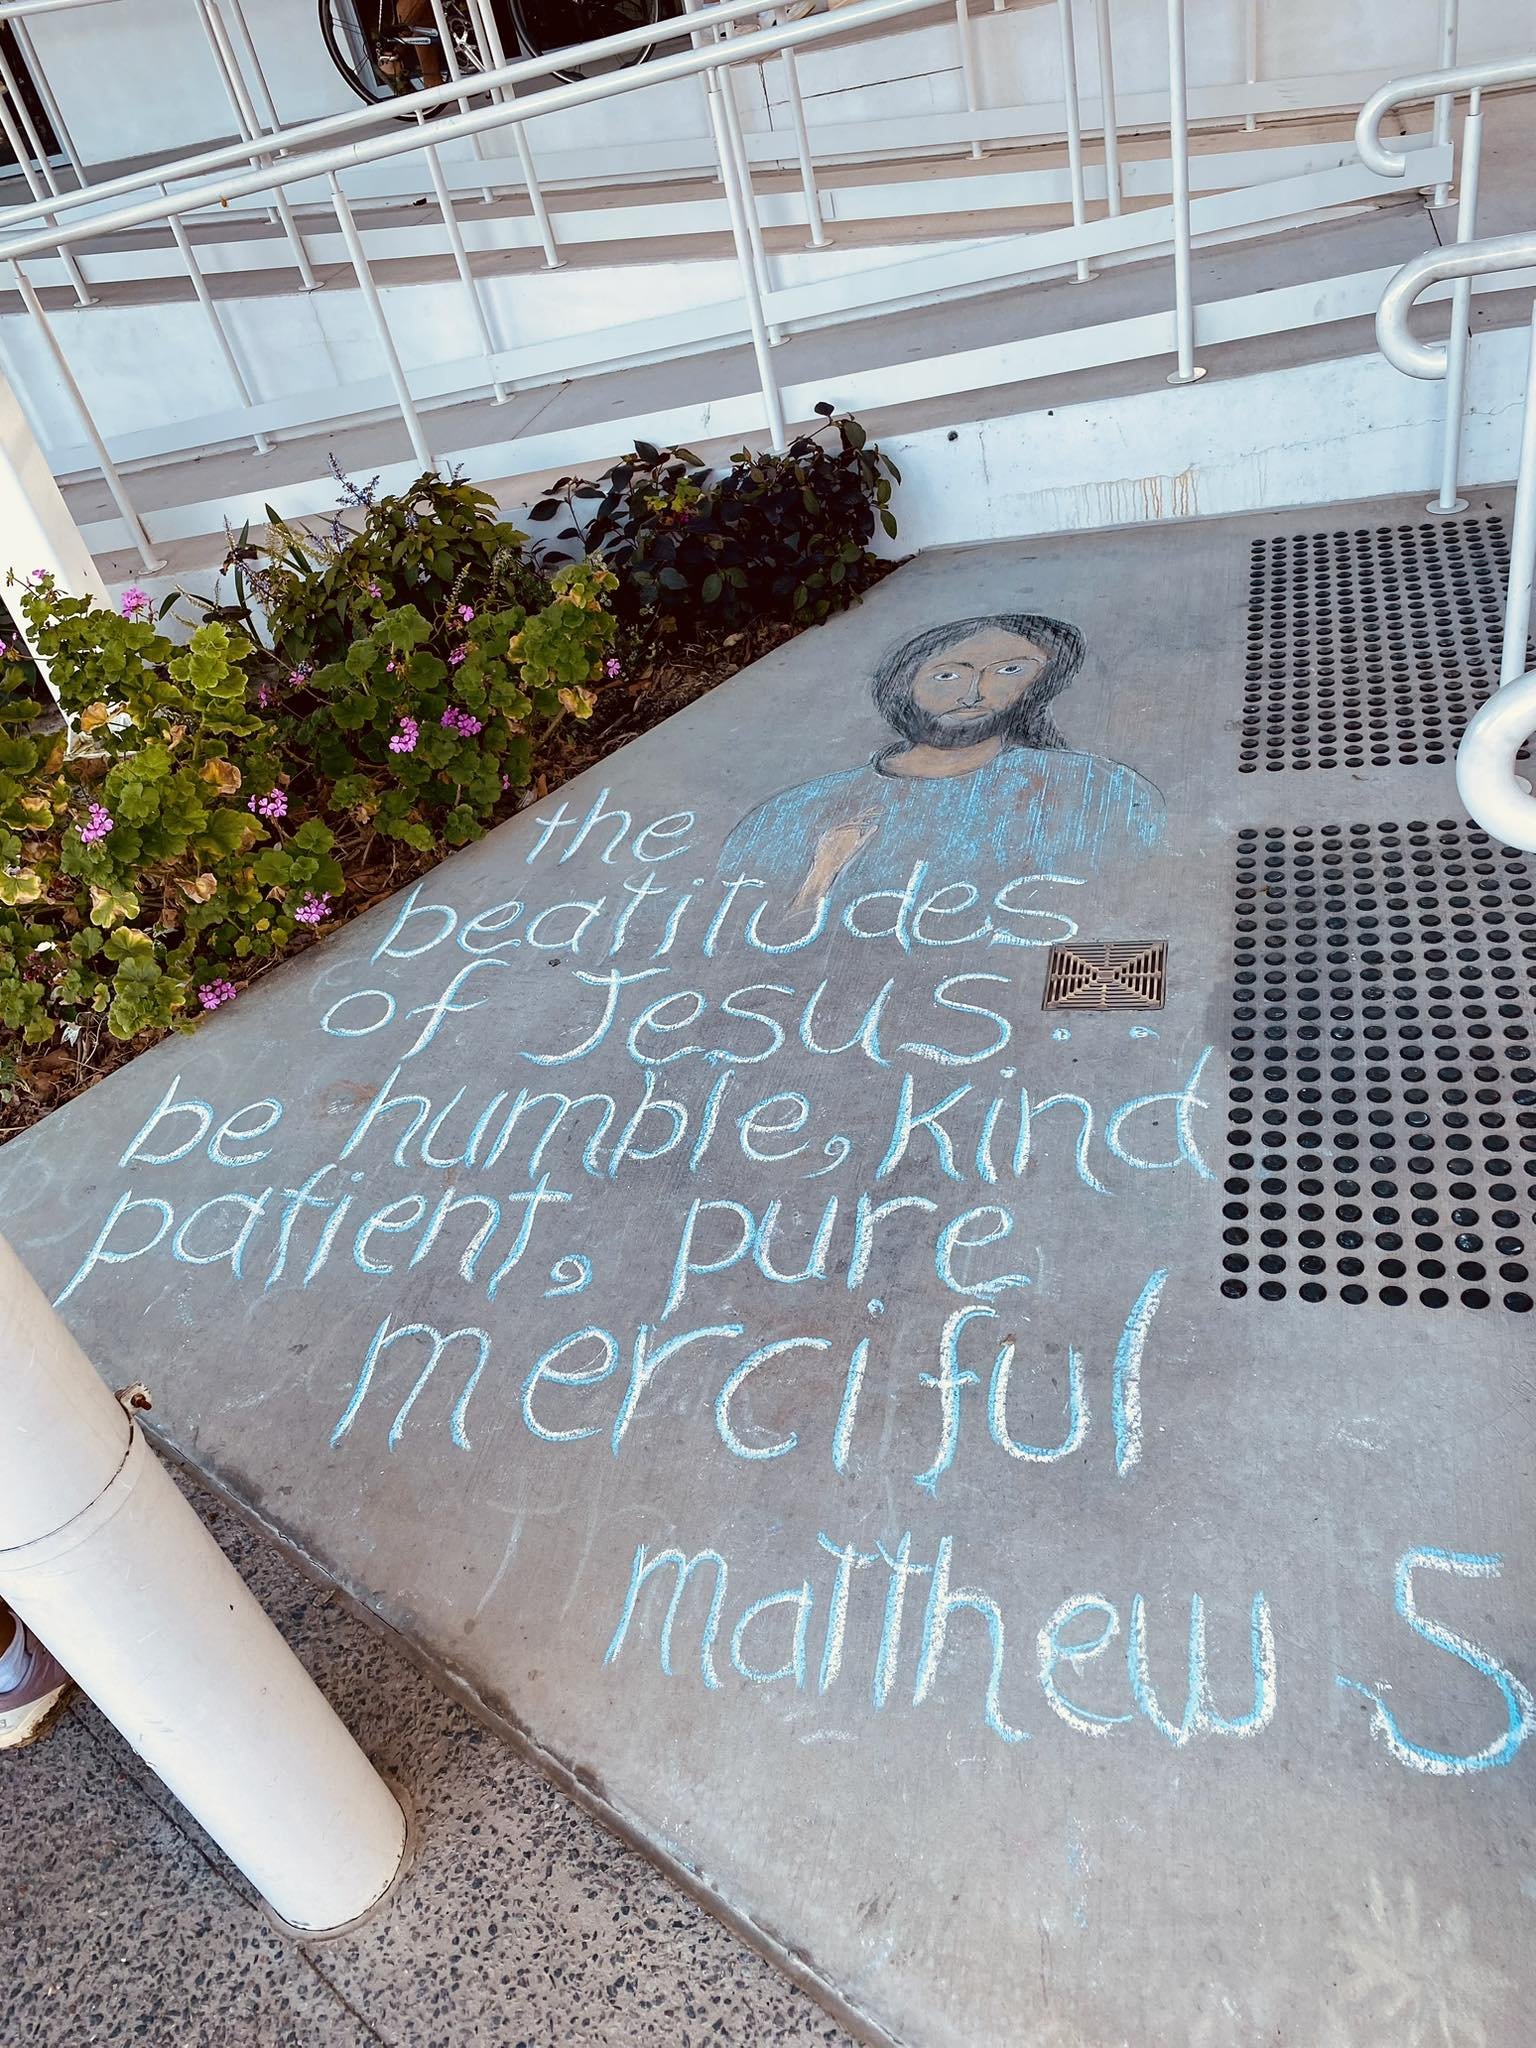 the
beatitudes
of Jesus..
be humble, kind
patient, pure
merciful
matthew 5